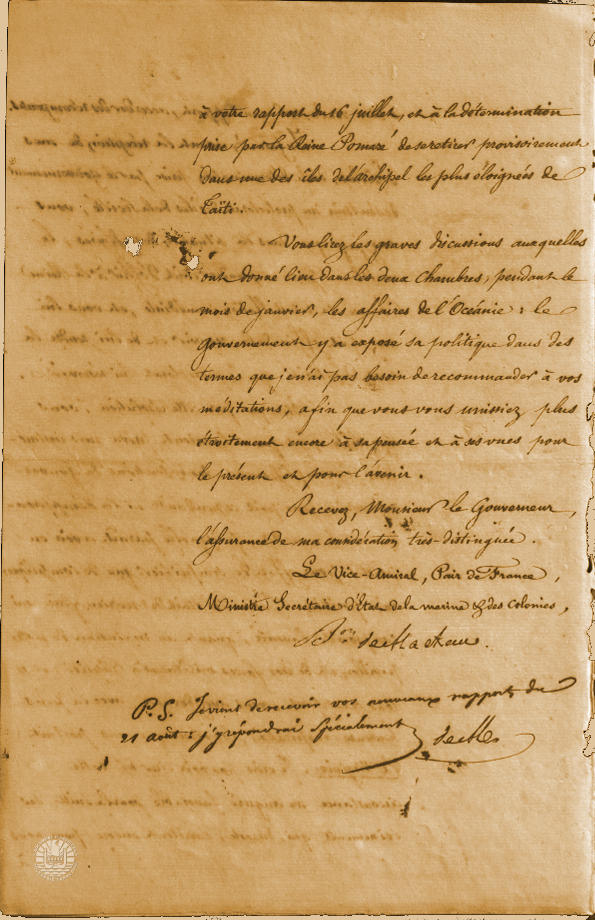 à votre rapport du 16 juillet, et à la détermination
prise par la Reine Pomaré de se retirer provisoirement
dans une des îles de l'archipel les plus éloignées de
Taïti.
Vous lirez les graves discussions auxquelles
ont donné lieu dans les deux Chambres, pendant le
mois de janvier, les affaires de l'Océanie : le
Gouvernement y a exposé sa politique dans des
termes que je n'ai pas besoin de recommander à vos
méditations, afin que vous vous unissiez plus
étroitement encore à sa pensée et à ses vues pour
le présent et pour l'avenir.
Recevez, Monsieur le Gouverneur,
l'assurance de ma considération très-distinguée.
Le Vice-Amiral, Pair de France,
Ministre Secrétaire d'Etat de la marine & des colonies,
Bon de Mackau.
P.S. Je viens de recevoir vos nouveaux rapports du
21 août : j'y répondrai spécialement
de M